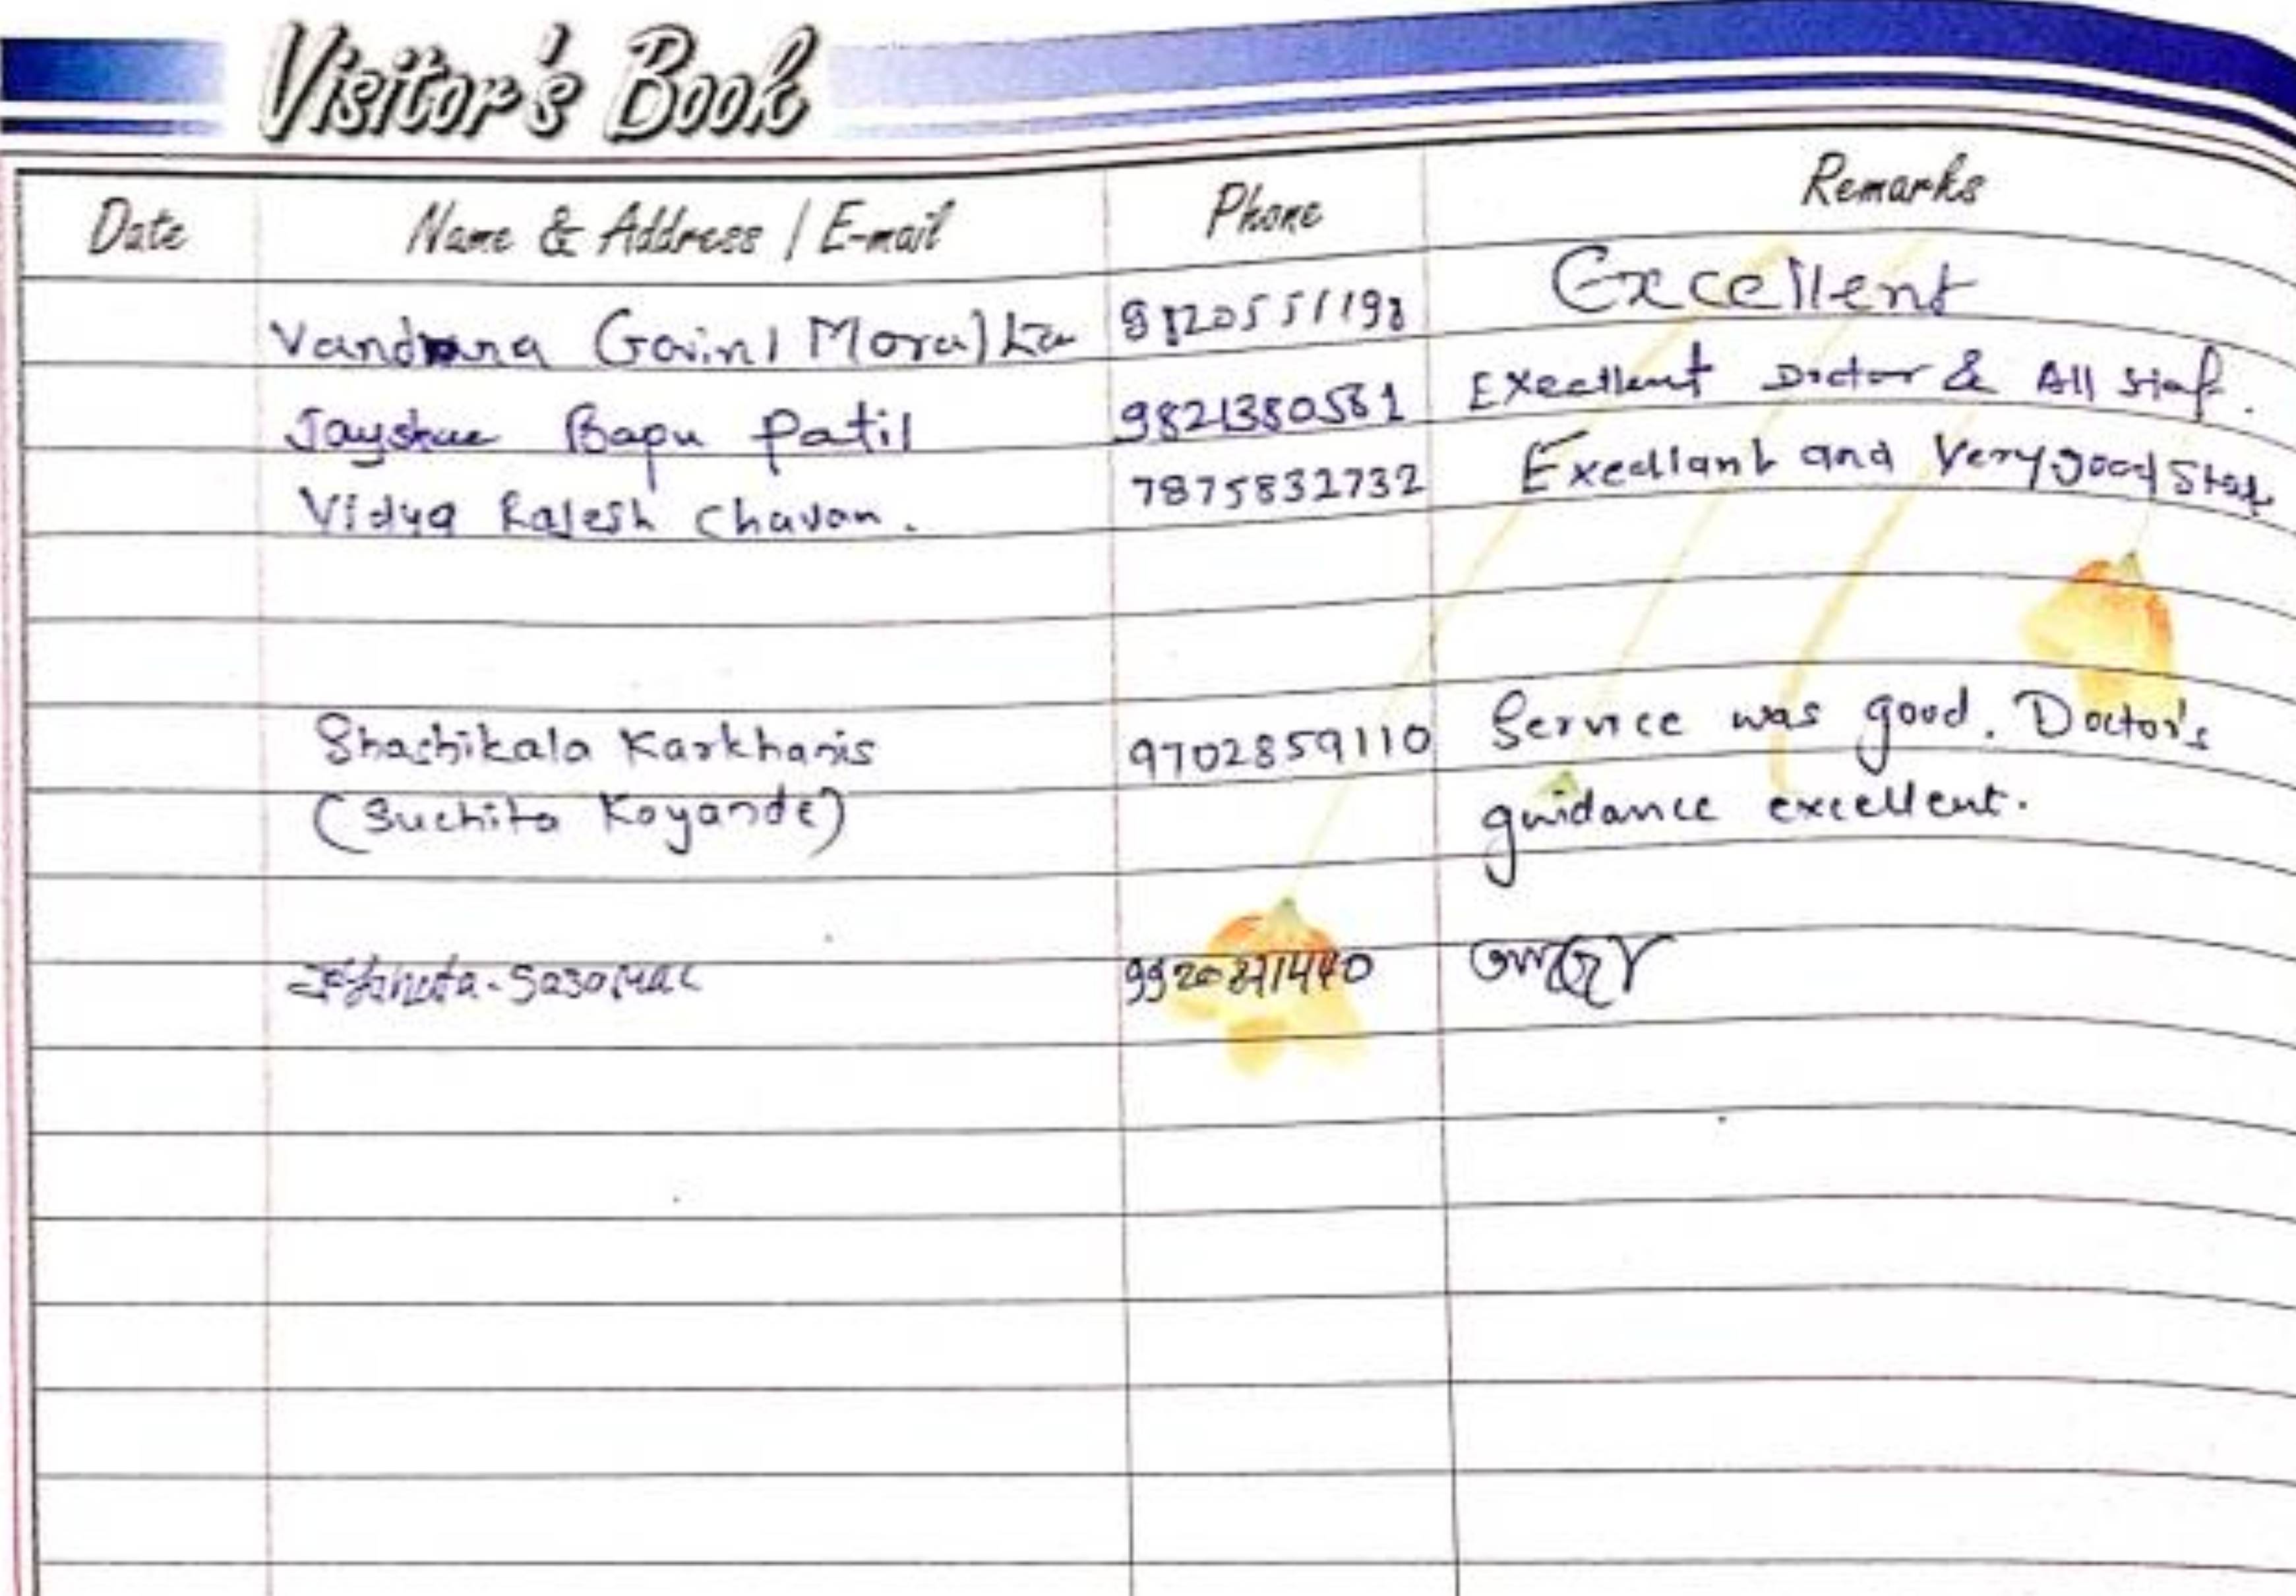 Visitor's Book
Date Name & Address / E-mail Phone Remarks
Vandana 9820551198 Excellent
Jayshree Bapu Patil 9821380581 Execllent Doctor & All Staf.
Vidya Rajesh Chavan. 7875832732 Execllant and Very good Staf
Shashikala Karkhanis 9702859110 Service was good. Doctor's
(Suchita Koyande) guidance excellent.